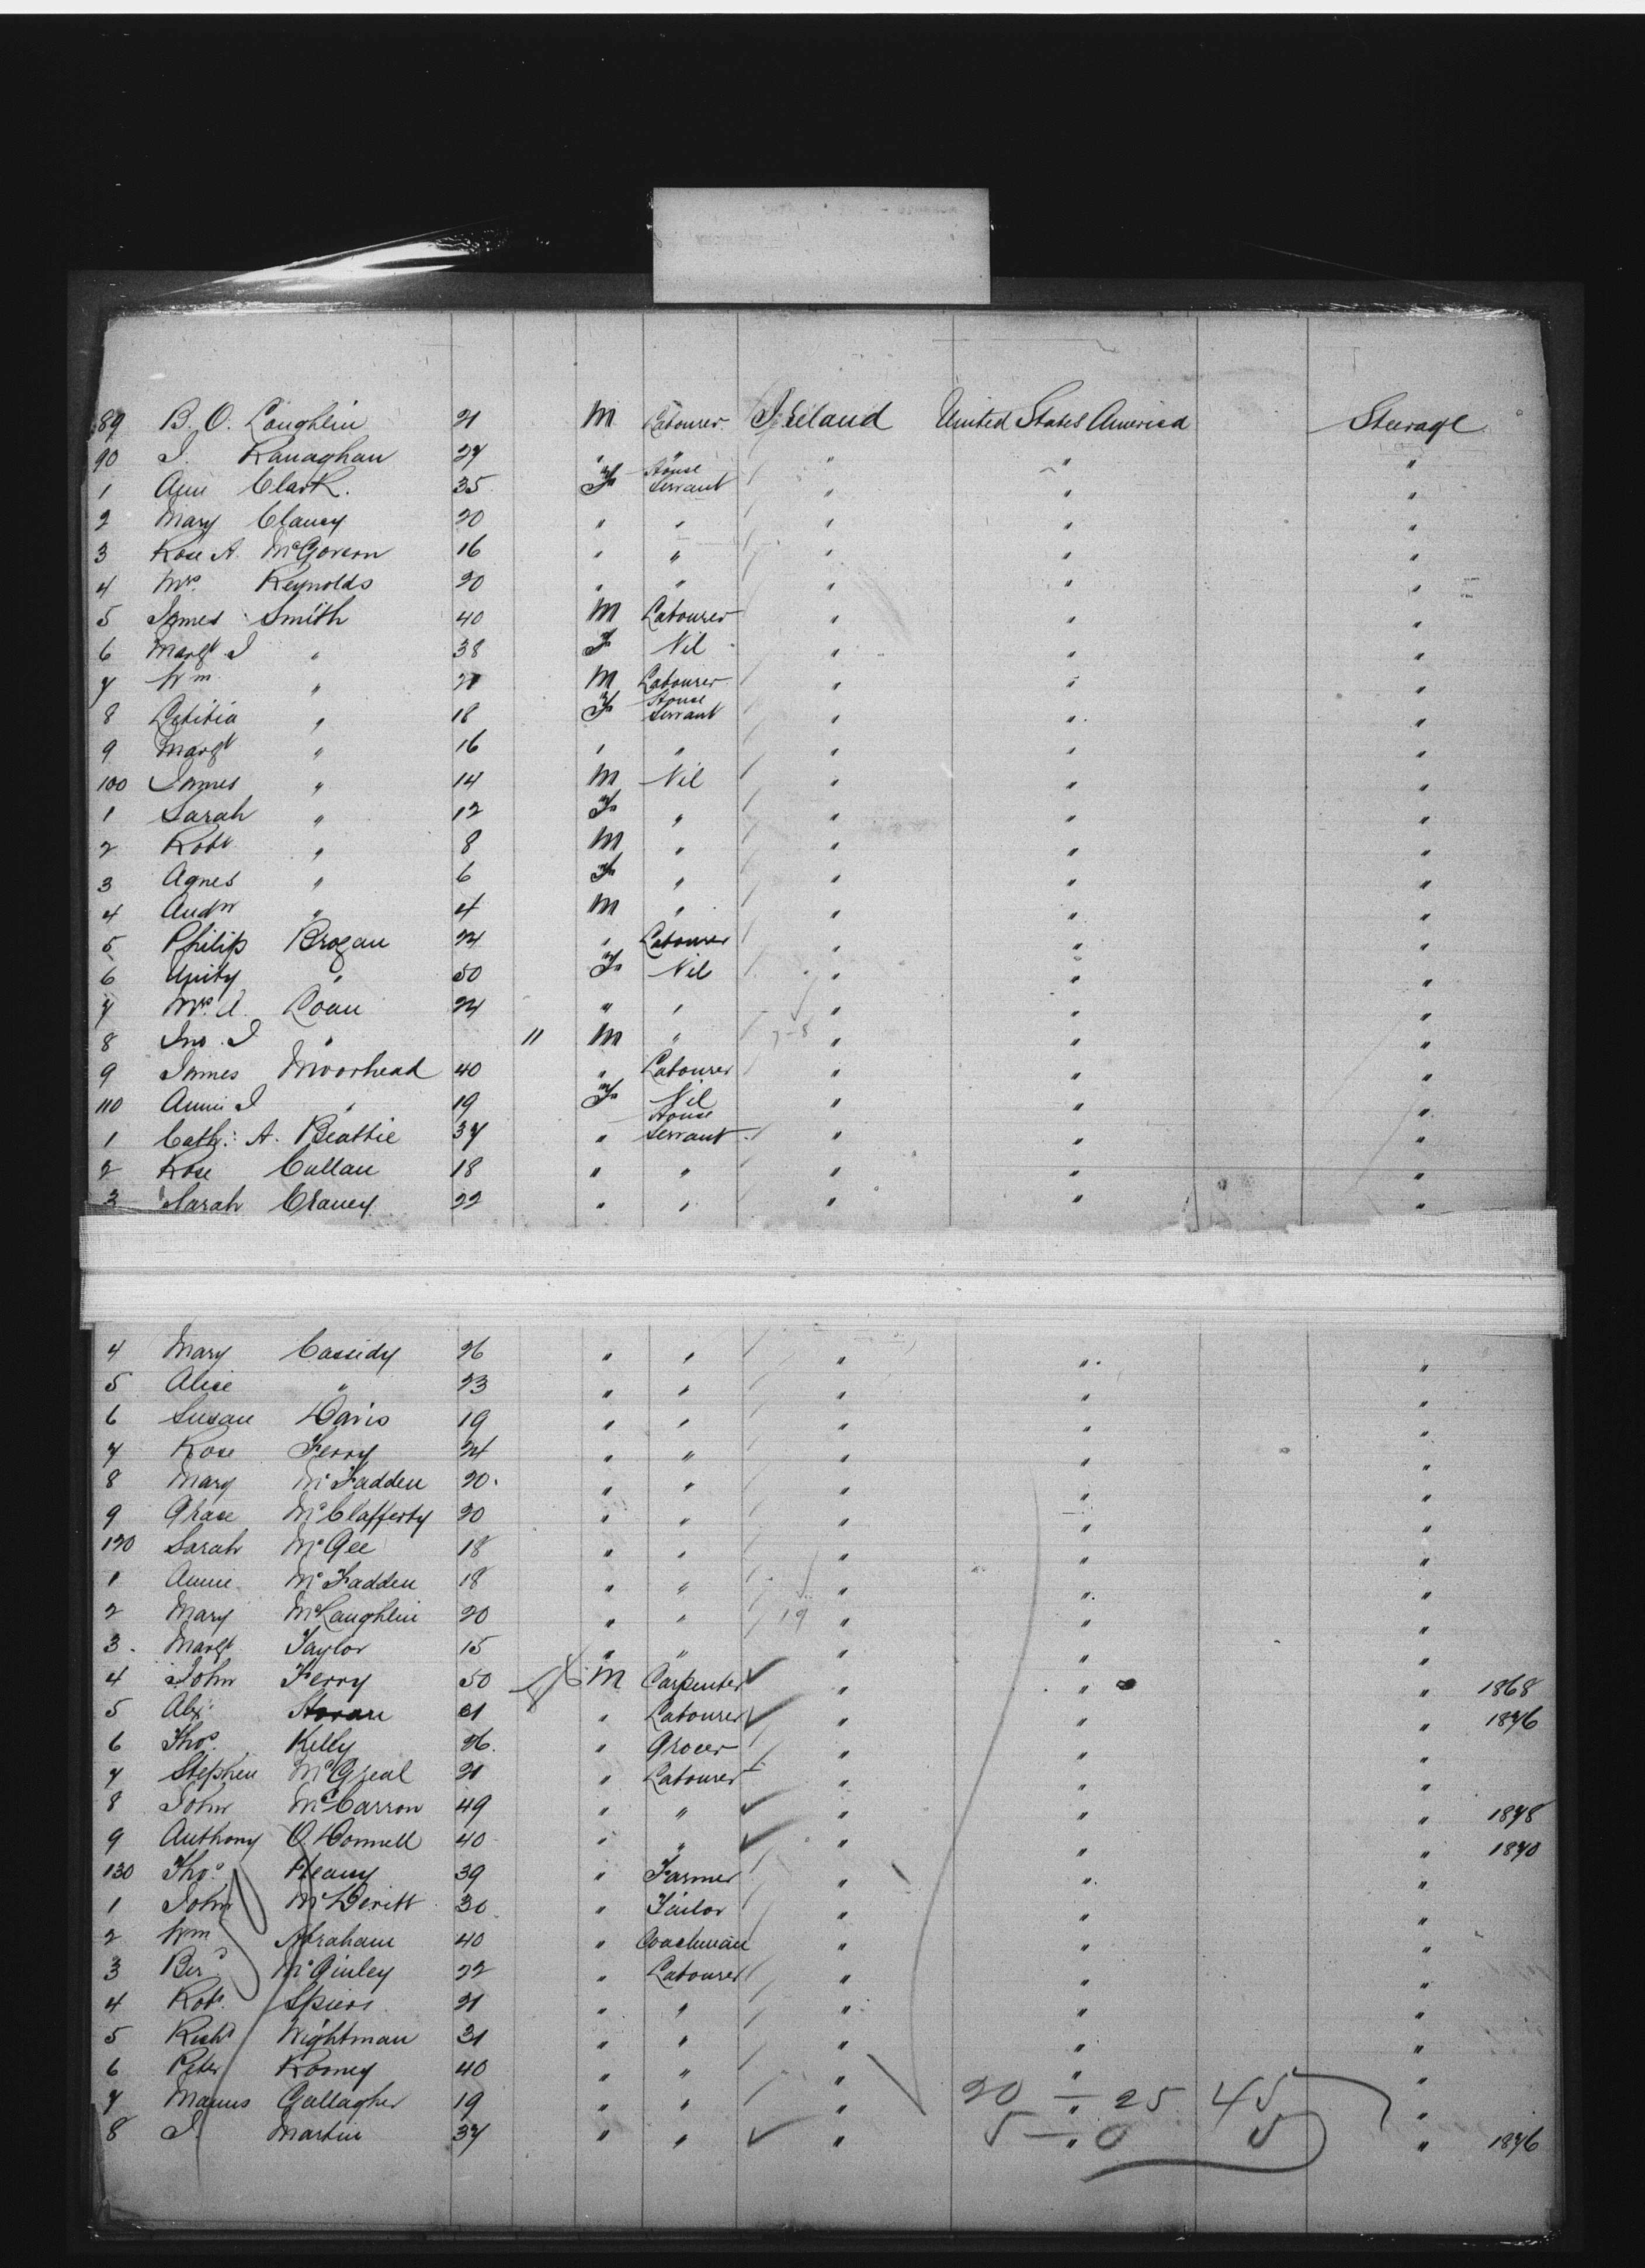 89 B. O. Loughlin 21 M Labourer Ireland United States America Steerage
90 J. Ranaghan 27 " " " " "
1 Ann Clark. 35 F House Servant " " "
2 Mary Clancy 20 " " " " "
3 Rose A. McGovern 16 " " " " "
4 Mrs. Reynolds 20 " " " " "
5 James Smith 40 M Labourer " " "
6 Margt J " 38 F Nil " " "
7 Wm " M Labourer " " "
8 Letitia " 18 F House Servant " " "
9 Margt " 16 " " " " "
100 James " 14 M Nil " " "
1 Sarah " 12 F " " " "
2 Robt " 8 M " " " "
3 Agnes " 6 F " " " "
4 Andw " 4 M " " " "
5 Philip Brogan 24 " Labourer " " "
6 Unity " 50 F Nil " " "
7 Mrs. A. Coan 24 " " " " "
8 Jno. J " 11 M " " " "
9 James Moorhead 40 " Labourer " " "
110 Annie J " 19 F Nil " " "
1 Cath: A. Beattie 37 " House Servant " " "
2 Rose Cullan 18 " " " " "
3 Sarah Craney 22 " " " " "
4 Mary Cassidy 26 " " " " "
5 Alice " 23 " " " " "
6 Susan Davis 19 " " " " "
7 Rose Ferry 24 " " " " "
8 Mary McFadden 20 " " " " "
9 Grace McClafferty 20 " " " " "
120 Sarah McGee 18 " " " " "
1 Annie McFadden 18 " " " " "
2 Mary McLaughlin 20 " " 19 " " "
3 Margt Taylor 15 " " " " "
4 John Ferry 50 M Carpenter " " " 1868
5 Alex: " Labourer " " " 1876
6 Thos. Kelly 26 " Grocer " " "
7 Stephen McGreal 21 " Labourer " " "
8 John McCarron 49 " " " " " 1878
9 Anthony O'Donnell 40 " " " " " 1870
130 Thos. Heany 39 " Farmer " " "
1 John McDevitt 30 " Tailor " " "
2 Wm Abraham 40 " Coachman " " "
3 Berd McGinley 22 " Labourer " " "
4 Robt. Spiers 21 " " " " "
5 Richd Wightman 31 " " " " "
6 Peter Rooney 40 " " " " "
7 Manus Gallagher 19 " " " 20 — " 25 45 "
8 J. Martin 37 " " " 5 — " 0 5 " 1876